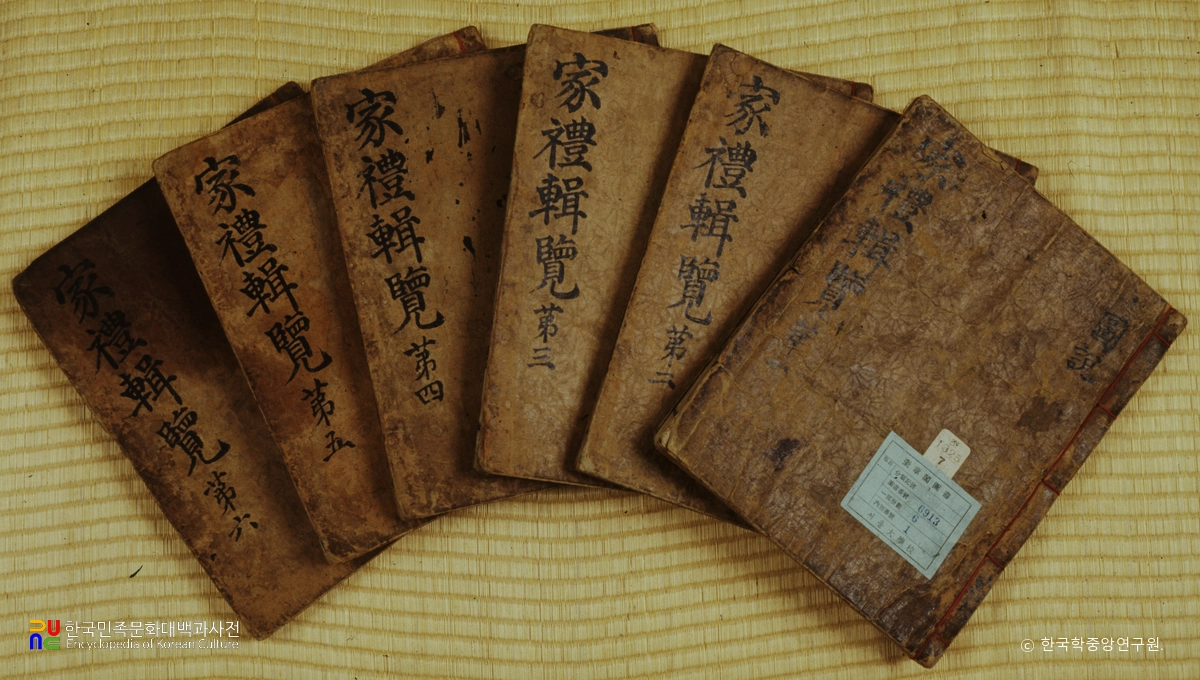 家禮輯覽 第六
家禮輯覽 第五
家禮輯覽 第四
家禮輯覽 第三
家禮輯覽 第二
家禮輯覽 第一
圖說
1325
7
奎章閣圖書
6913
6
1
서울大學校
한국민족문화대백과사전
Encyclopedia of Korean Culture
© 한국학중앙연구원.